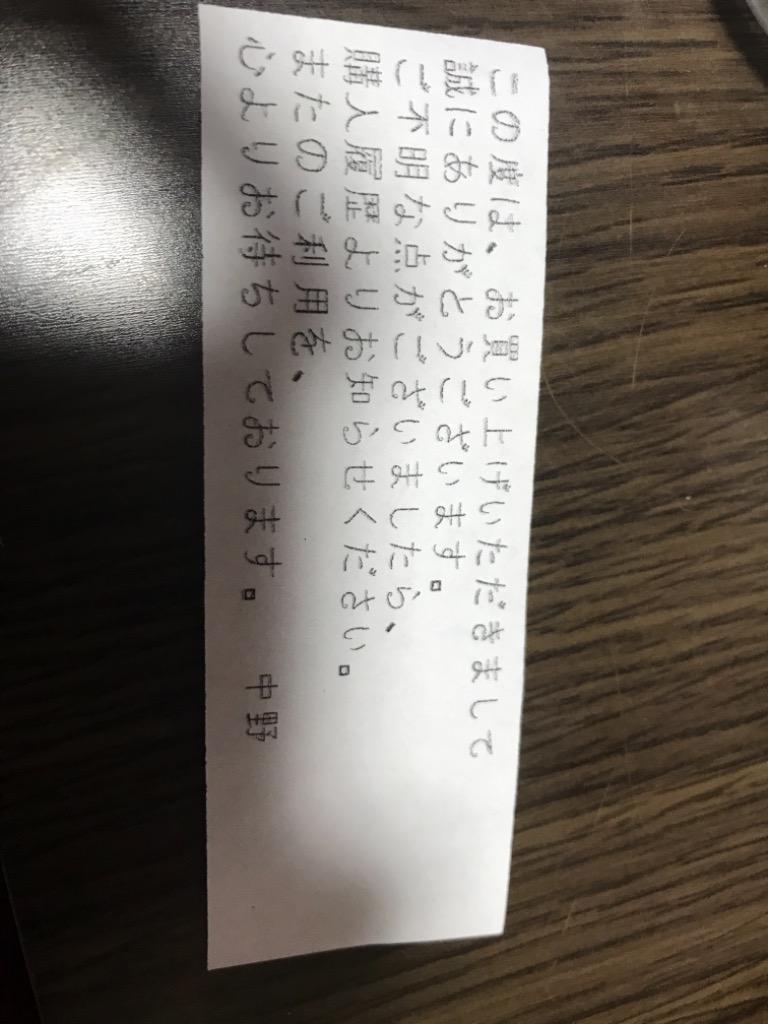 この度は、お買い上げいただきまして
誠にありがとうございます。
ご不明な点がございましたら、
購入履歴よりお知らせください。
またのご利用を、
心よりお待ちしております。 中野